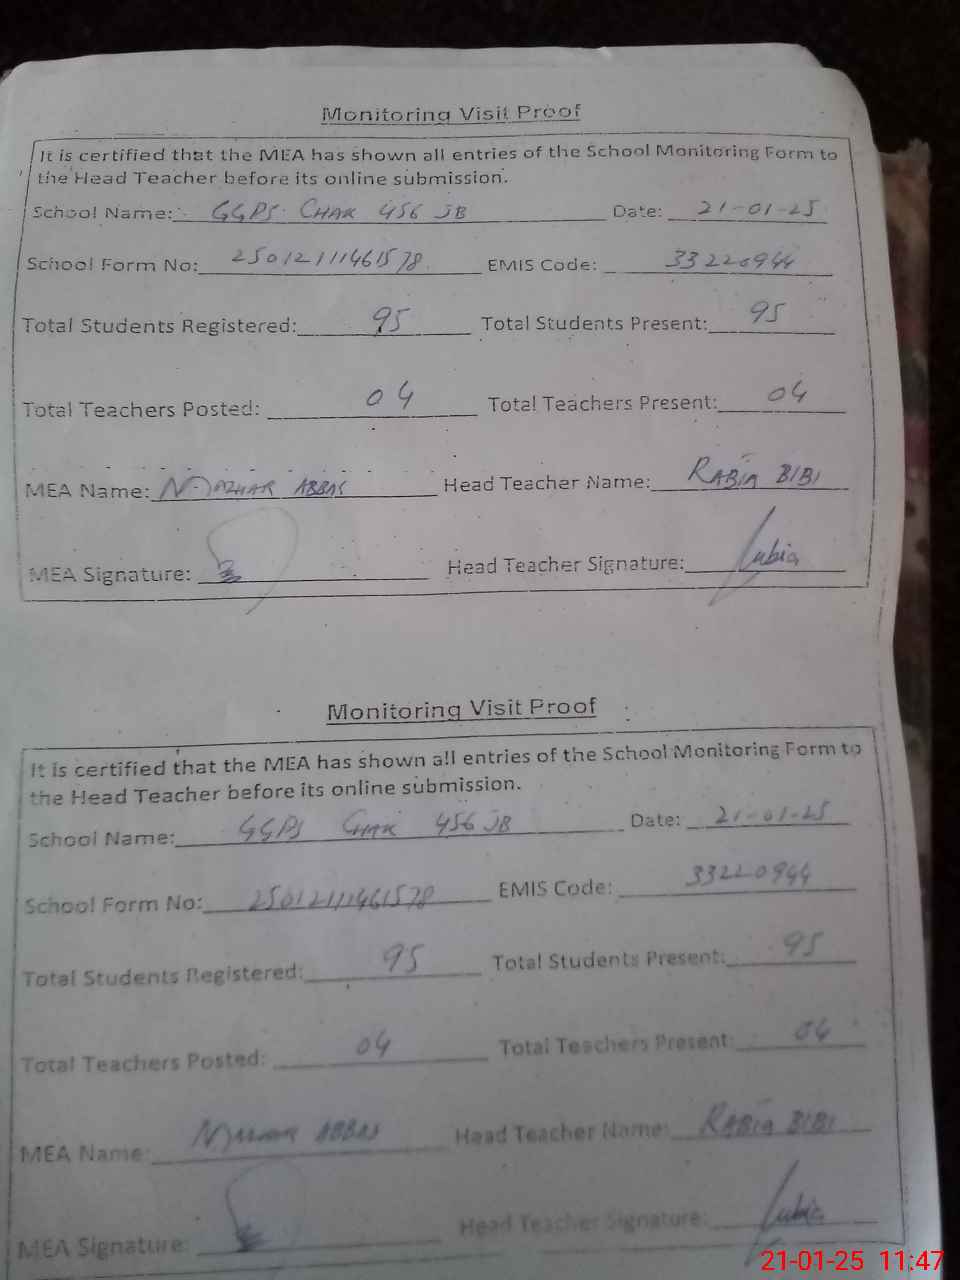 Monitoring Visit Proof
It is certified that the MEA has shown all entries of the School Monitoring Form to
the Head Teacher before its online submission.
School Name: GGPS CHAK 456 JB Date: 21-01-25
School Form No: 25012111461578 EMIS Code: 33220944
Total Students Registered: 95 Total Students Present: 95
Total Teachers Posted: 04 Total Teachers Present: 04
MEA Name: MAZHAR ABBAS Head Teacher Name: RABIA BIBI
MEA Signature: Head Teacher Signature: Rabia
Monitoring Visit Proof
It is certified that the MEA has shown all entries of the School Monitoring Form to
the Head Teacher before its online submission.
School Name: GGPS CHAK 456 JB Date: 21-01-25
School Form No: 25012111461578 EMIS Code: 33220944
Total Students Registered: 95 Total Students Present: 95
Total Teachers Posted: 04 Total Teachers Present: 04
MEA Name: MAZHAR ABBAS Head Teacher Name: RABIA BIBI
MEA Signature: Head Teacher Signature: Rabia
21-01-25 11:47